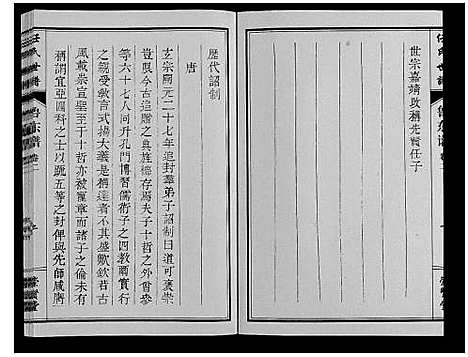 世宗嘉靖改稱先賢任子
歷代詔制
唐
玄宗開元二十七年追封羣弟子詔制曰道可褒崇
豈限今古追贈之典旌德存焉夫子十哲之外曾參
等六十七人同升孔門博習儒術子之四教爾實行
之親受教言式揚大義是稱達者不其盛歟欽若古
風載崇宣聖至于十哲亦被寵章而諸子之倫未有
稱謂宜亞四科之士以疏五等之封俾與先師咸膺
任氏世譜
魯东谱
卷一